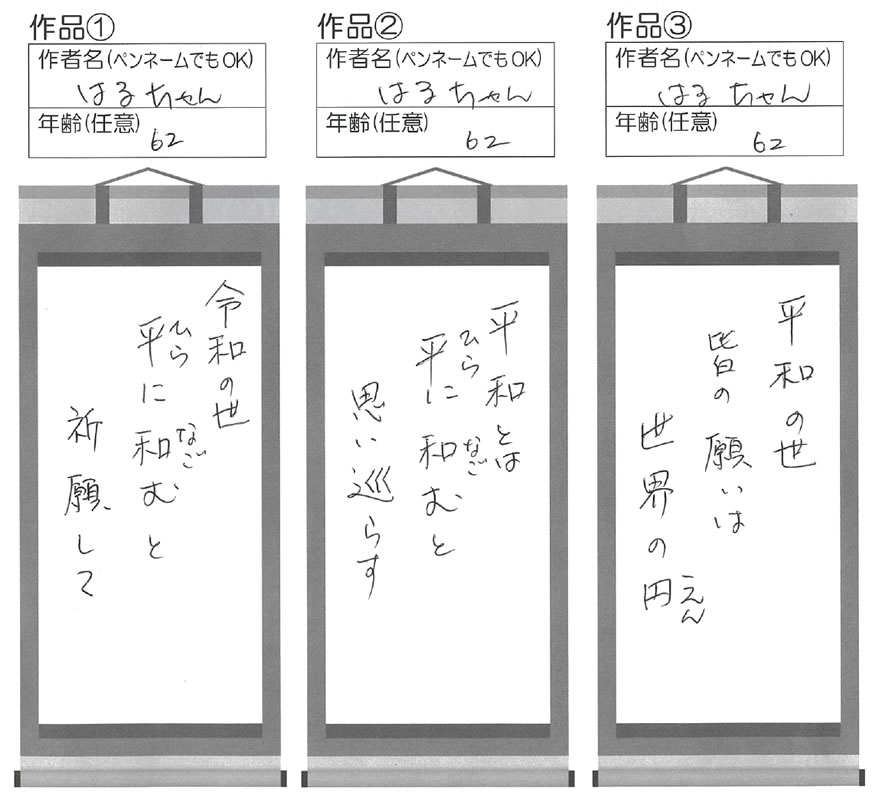 作品①
作者名(ペンネームでもOK)
はるちゃん
年齢(任意)
62
令和の世
平に和むと
ひら
なご
祈願して
作品②
作者名(ペンネームでもOK)
はるちゃん
年齢(任意)
62
平和とは
平に和むと
ひら
なご
思い巡らす
作品③
作者名(ペンネームでもOK)
はるちゃん
年齢(任意)
62
平和の世
皆の願いは
世界の円
えん